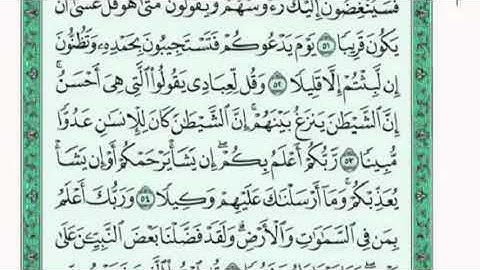 فَسَيُنْغِضُونَ إِلَيْكَ رُءُوسَهُمْ وَيَقُولُونَ مَتَىٰ هُوَ قُلْ عَسَىٰ أَن
يَكُونَ قَرِيبًا ٥١ يَوْمَ يَدْعُوكُمْ فَتَسْتَجِيبُونَ بِحَمْدِهِۦ وَتَظُنُّونَ
إِن لَّبِثْتُمْ إِلَّا قَلِيلًا ٥٢ وَقُل لِّعِبَادِى يَقُولُوا۟ ٱلَّتِى هِىَ أَحْسَنُ ۚ
إِنَّ ٱلشَّيْطَٰنَ يَنزَغُ بَيْنَهُمْ ۚ إِنَّ ٱلشَّيْطَٰنَ كَانَ لِلْإِنسَٰنِ عَدُوًّا
مُّبِينًا ٥٣ رَّبُّكُمْ أَعْلَمُ بِكُمْ ۖ إِن يَشَأْ يَرْحَمْكُمْ أَوْ إِن يَشَأْ
يُعَذِّبْكُمْ ۚ وَمَآ أَرْسَلْنَٰكَ عَلَيْهِمْ وَكِيلًا ٥٤ وَرَبُّكَ أَعْلَمُ
بِمَن فِى ٱلسَّمَٰوَٰتِ وَٱلْأَرْضِ ۗ وَلَقَدْ فَضَّلْنَا بَعْضَ ٱلنَّبِيِّـۧنَ عَلَىٰ